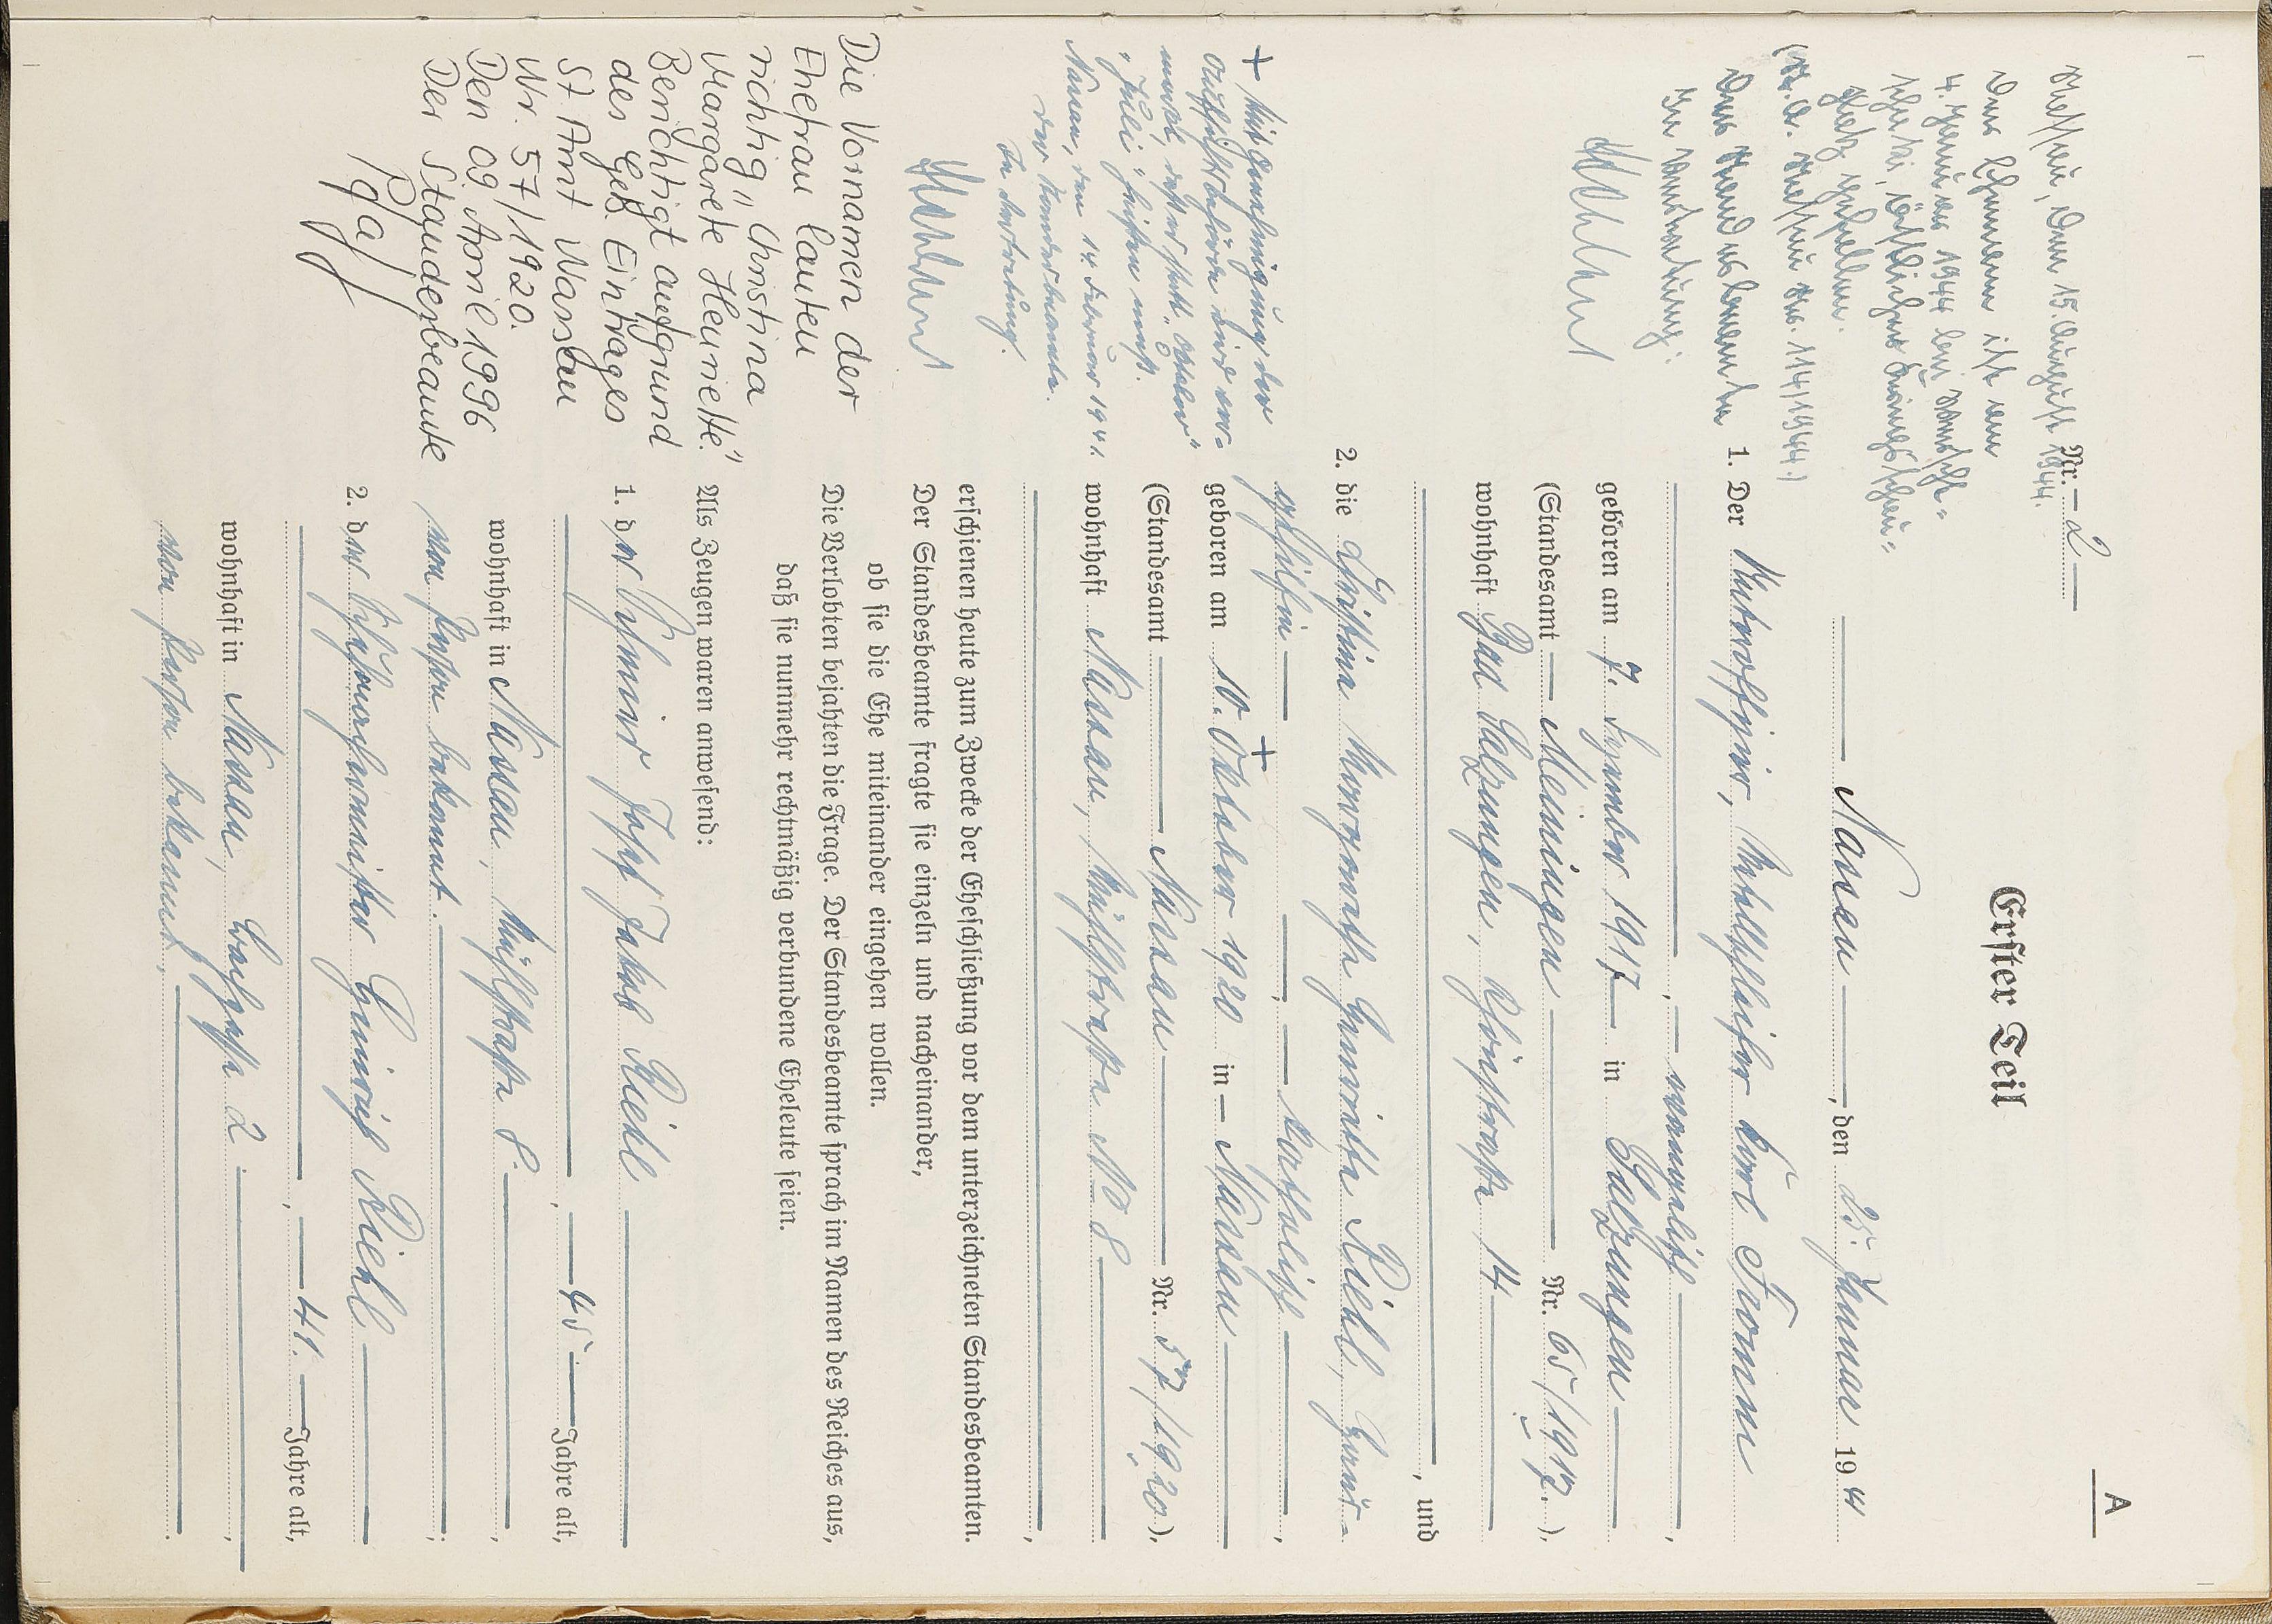 A
Nr. 2
Erster Teil
Nassau, den 25. Januar 1941
1. Der Unteroffizier, Metallschleifer Karl Fromm
geboren am 7. Dezember 1917 in Salzungen
(Standesamt Meiningen Nr. 65/1917.),
wohnhaft Bad Salzungen, 14
, und
2. die Christina Margaretha Henriette Riehl, Haus-
gehilfin, katholisch,
geboren am 10. + Oktober 1920 in Nassau
(Standesamt Nassau Nr. 57/1920),
wohnhaft Nassau, Mühlstraße No 8
,
erschienen heute zum Zwecke der Eheschließung vor dem unterzeichneten Standesbeamten.
Der Standesbeamte fragte sie einzeln und nacheinander,
ob sie die Ehe miteinander eingehen wollen.
Die Verlobten bejahten die Frage. Der Standesbeamte sprach im Namen des Reiches aus,
daß sie nunmehr rechtmäßig verbundene Eheleute seien.
Als Zeugen waren anwesend:
1. der Josef Jakob Riehl
, 45 Jahre alt,
wohnhaft in Nassau, Mühlstraße 8.
von Person bekannt.;
2. der Heinrich Riehl
, 41. Jahre alt,
wohnhaft in Nassau, 2,
von Person bekannt.
Nassau, den 15. August 1944.
Der Ehemann ist am
4. Januar 1944 bei
gefallen.
(St. A. Nassau Nr. 114/1944.)
Der Standesbeamte
In Vertretung:
+ Mit Genehmigung der
Aufsichtsbehörde wird ver-
merkt, daß es statt "Oktober"
"Juli" heißen muß.
Nassau, den 14. Februar 1941.
Der Standesbeamte.
In Vertretung.
Die Vornamen der
Ehefrau lauten
richtig "Christina
Margarete Henriette".
Berichtigt aufgrund
des Geb. Eintrages
St Amt Nassau
Nr. 57/1920.
Den 09. April 1996
Der Standesbeamte